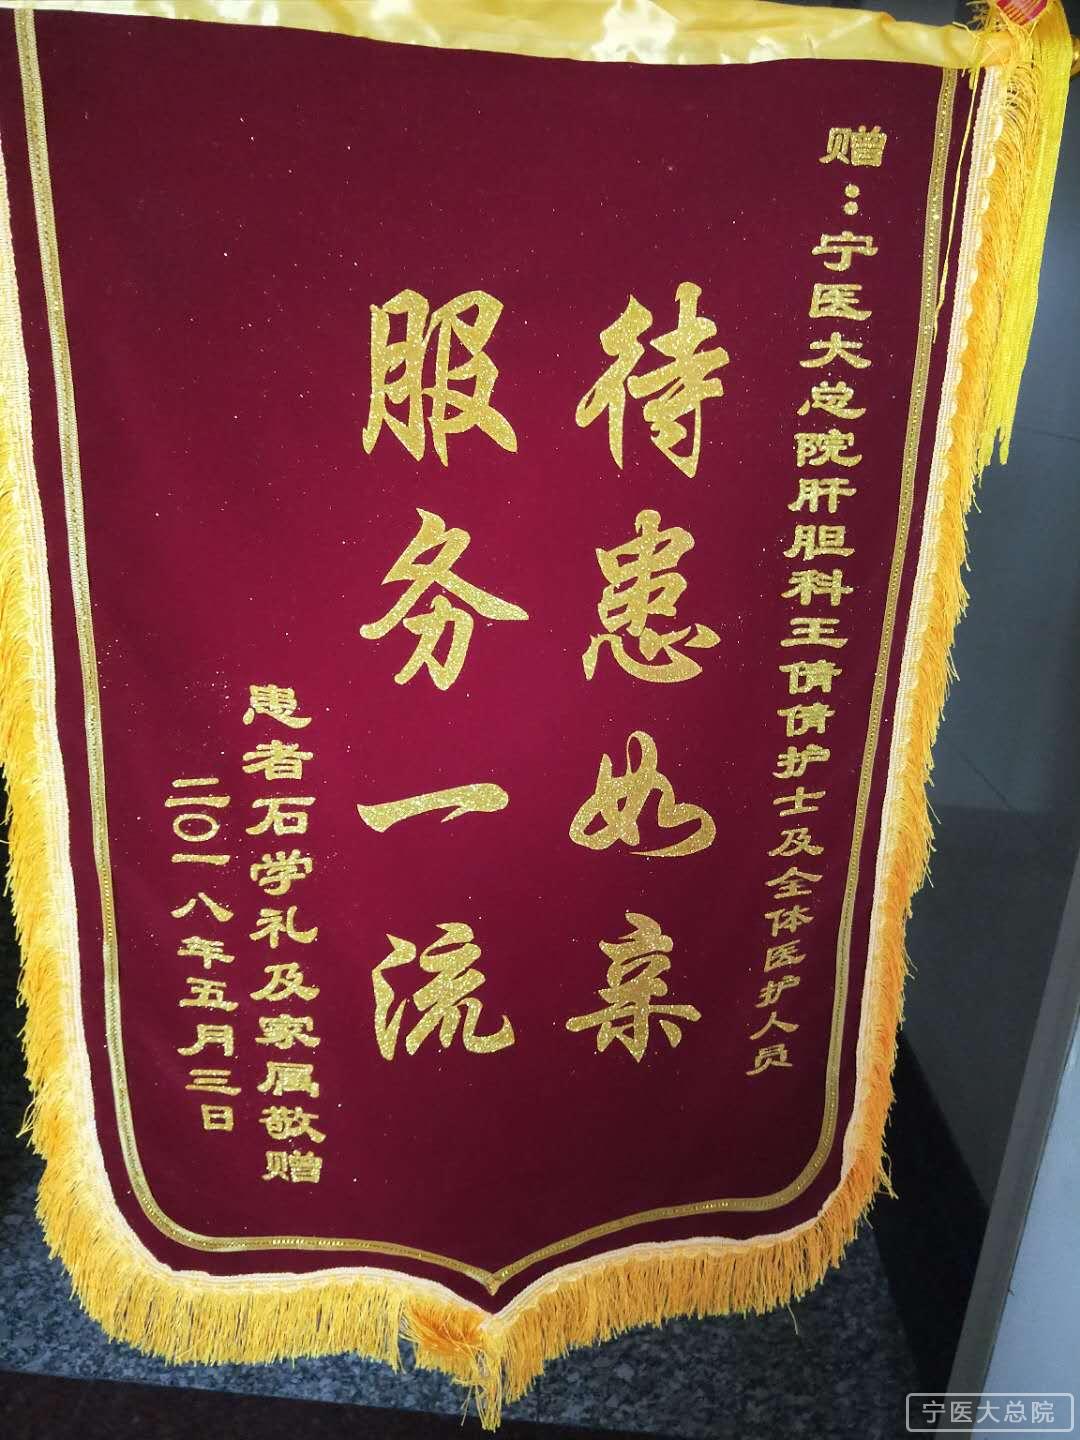 赠：宁医大总院肝胆科王倩倩护士及全体医护人员
待患如亲
服务一流
患者石学礼及家属敬赠
二〇一八年五月三日
宁医大总院